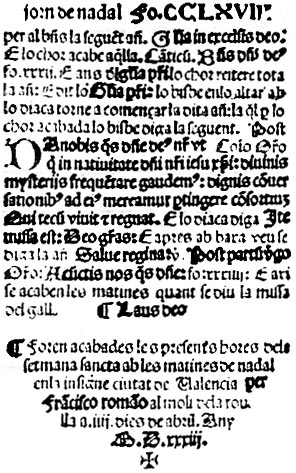 jorn de nadal Fo.CCLXVII.
per al bñs la següẽt añ. Glia in excelsis deo:
E lo chor acabe aq̃lla. Cãticũ. Bñs dñs de⁹
fo.xxxij. E ans dỉglia pr̃i.lo chor reitere tota
la añ: E dit lo Glia pr̃i: lo bisbe enlo altar ab
lo diaca torne a començar la dita añ: la q̃l p lo
chor acabada lo bisbe diga la seguent. Post
DA nobis q̃s dñe de⁹ nr̃ vt Co͂io Or̃o
q̃ in natiuitate dñi nr̃i iesu xp̃i: diuinis
mysterijs frequẽtare gaudem⁹: dignis cõuer
sationib⁹ ad ei⁹ mereamur ptingere cõsortiuz
Qui tecũ viuit ⁊ regnat. E lo diaca diga Ite
missa est: Deo gr̃as: E apres ab bara veu se
diga la añ Salue regina: ỹ. Post partũ ỹgo
Or̃o: Actiões nos q̃s dñe: fo.xxxiiij: E axi
se acaben les matines quant se diu la missa
del gall. ¶ Laus deo
¶ Foren acabades les presents hores dela
setmana sancta ab les matines de nadal
en la insigne ciutat de Valencia per
Francisco romão al moli dela rou
lla a .iiij. dies de abril. Any
M. D. xxxiij.
✠